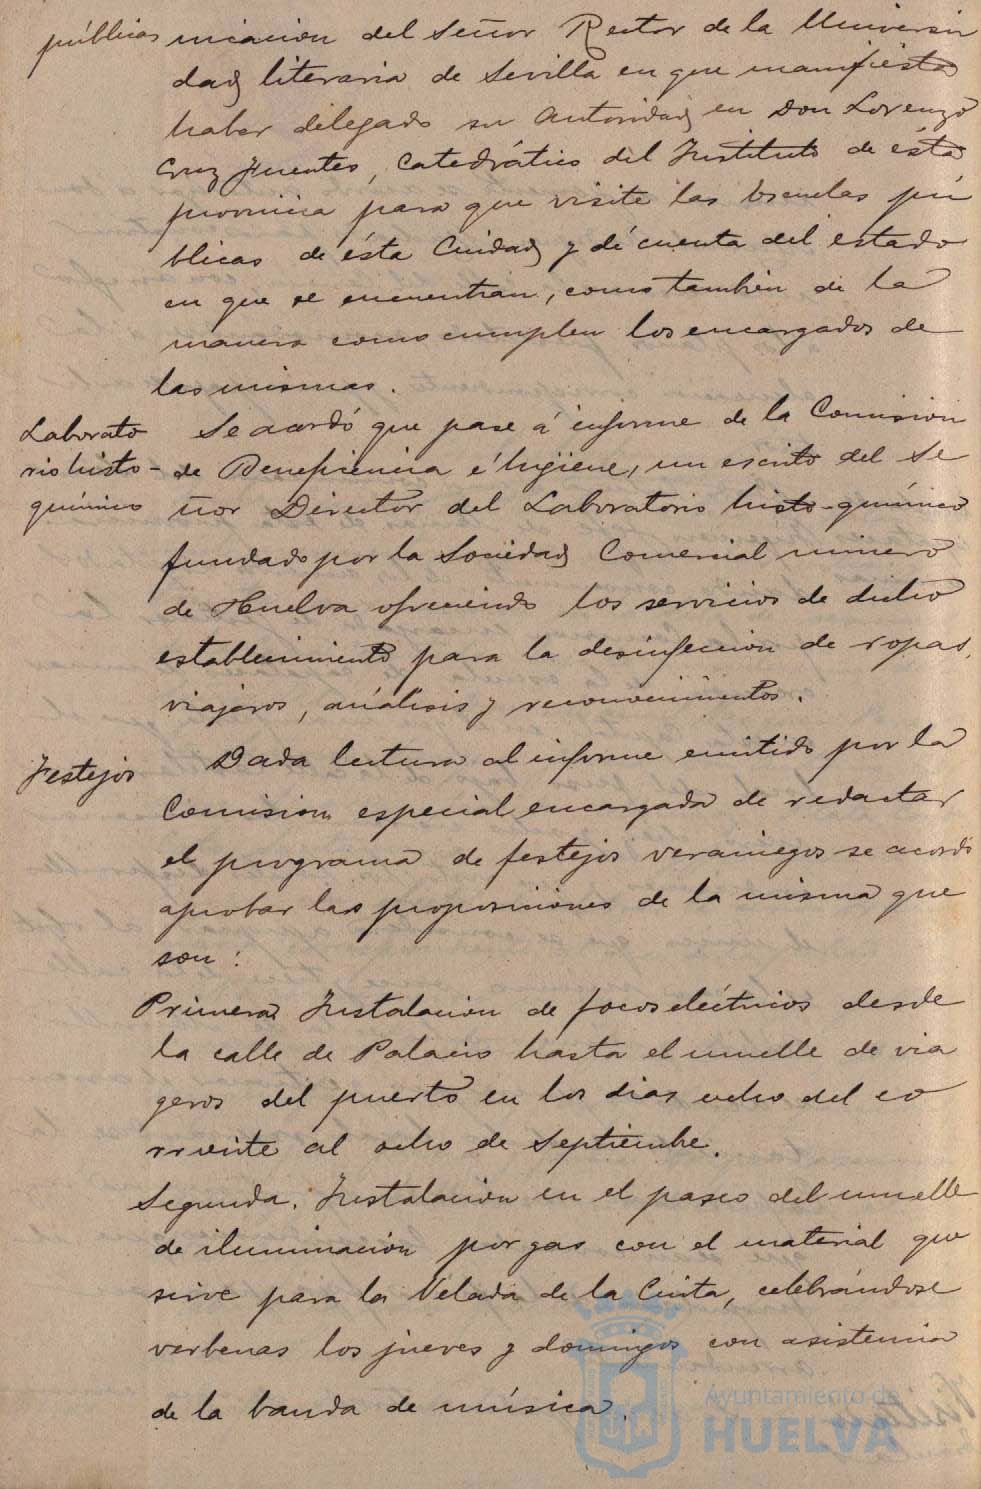 públicas nicación del Señor Rector de la Universi
dad literaria de Sevilla en que manifiesta
haber delegado su autoridad en Don Lorenzo
Cruz Fuentes, Catedrático del Instituto de ésta
provincia para que visite las Escuelas pú
blicas de ésta Ciudad y dé cuenta del estado
en que se encuentran, como tambien de la
manera como cumplen los encargados de
las mismas.
Laborato
rio histo-
químico
Se acordó que pase á informe de la Comision
de Beneficencia é higiene, un escrito del Se
ñor Director del Laboratorio histo-químico
fundado por la Sociedad Comercial minero
de Huelva ofreciendo los servicios de dicho
establecimiento para la desinfeccion de ropas,
viajeros, análisis y reconocimientos.
Festejos
Dada lectura al informe emitido por la
Comision especial encargada de redactar
el programa de festejos veraniegos se acordó
aprobar las proposiciones de la misma que
son:
Primera Instalacion de focos eléctricos desde
la calle de Palacio hasta el muelle de via
geros del puerto en los dias ocho del co
rriente al ocho de Septiembre.
Segunda. Instalacion en el paseo del muelle
de iluminacion por gas con el material que
sirve para la Velada de la Cinta, celebrándose
verbenas los jueves y domingos con asistencia
de la banda de música.
Ayuntamiento de
HUELVA